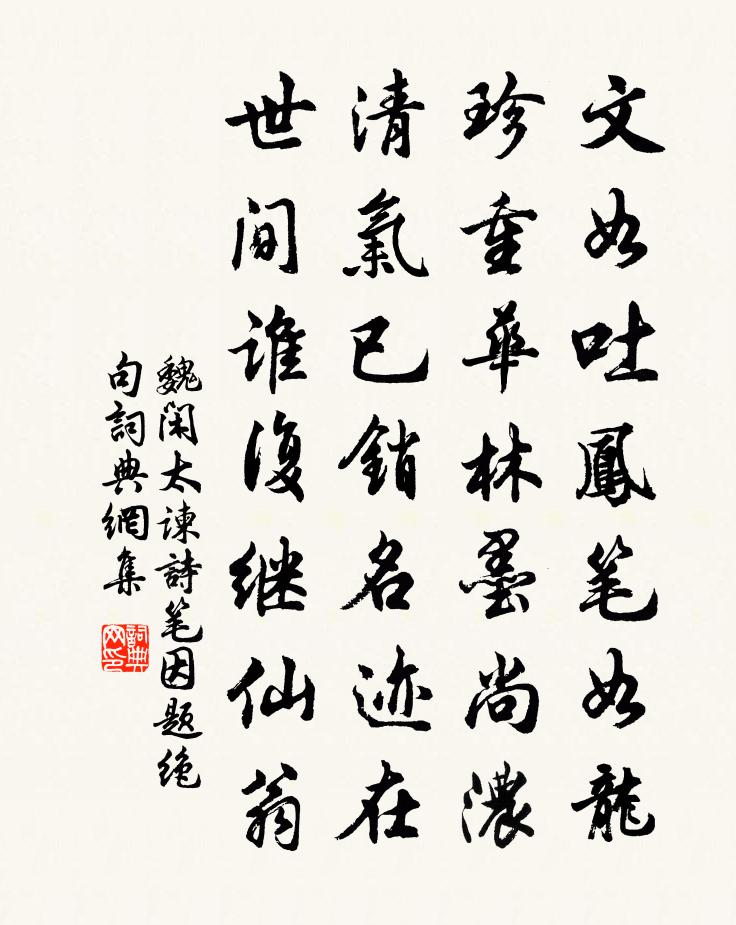 文如吐鳳笔如龍
珍重華林墨尚濃
清氣已銷名迹在
世间誰復继仙翁
魏闲太諫詩笔因题绝
句詞典網集
詞典網印